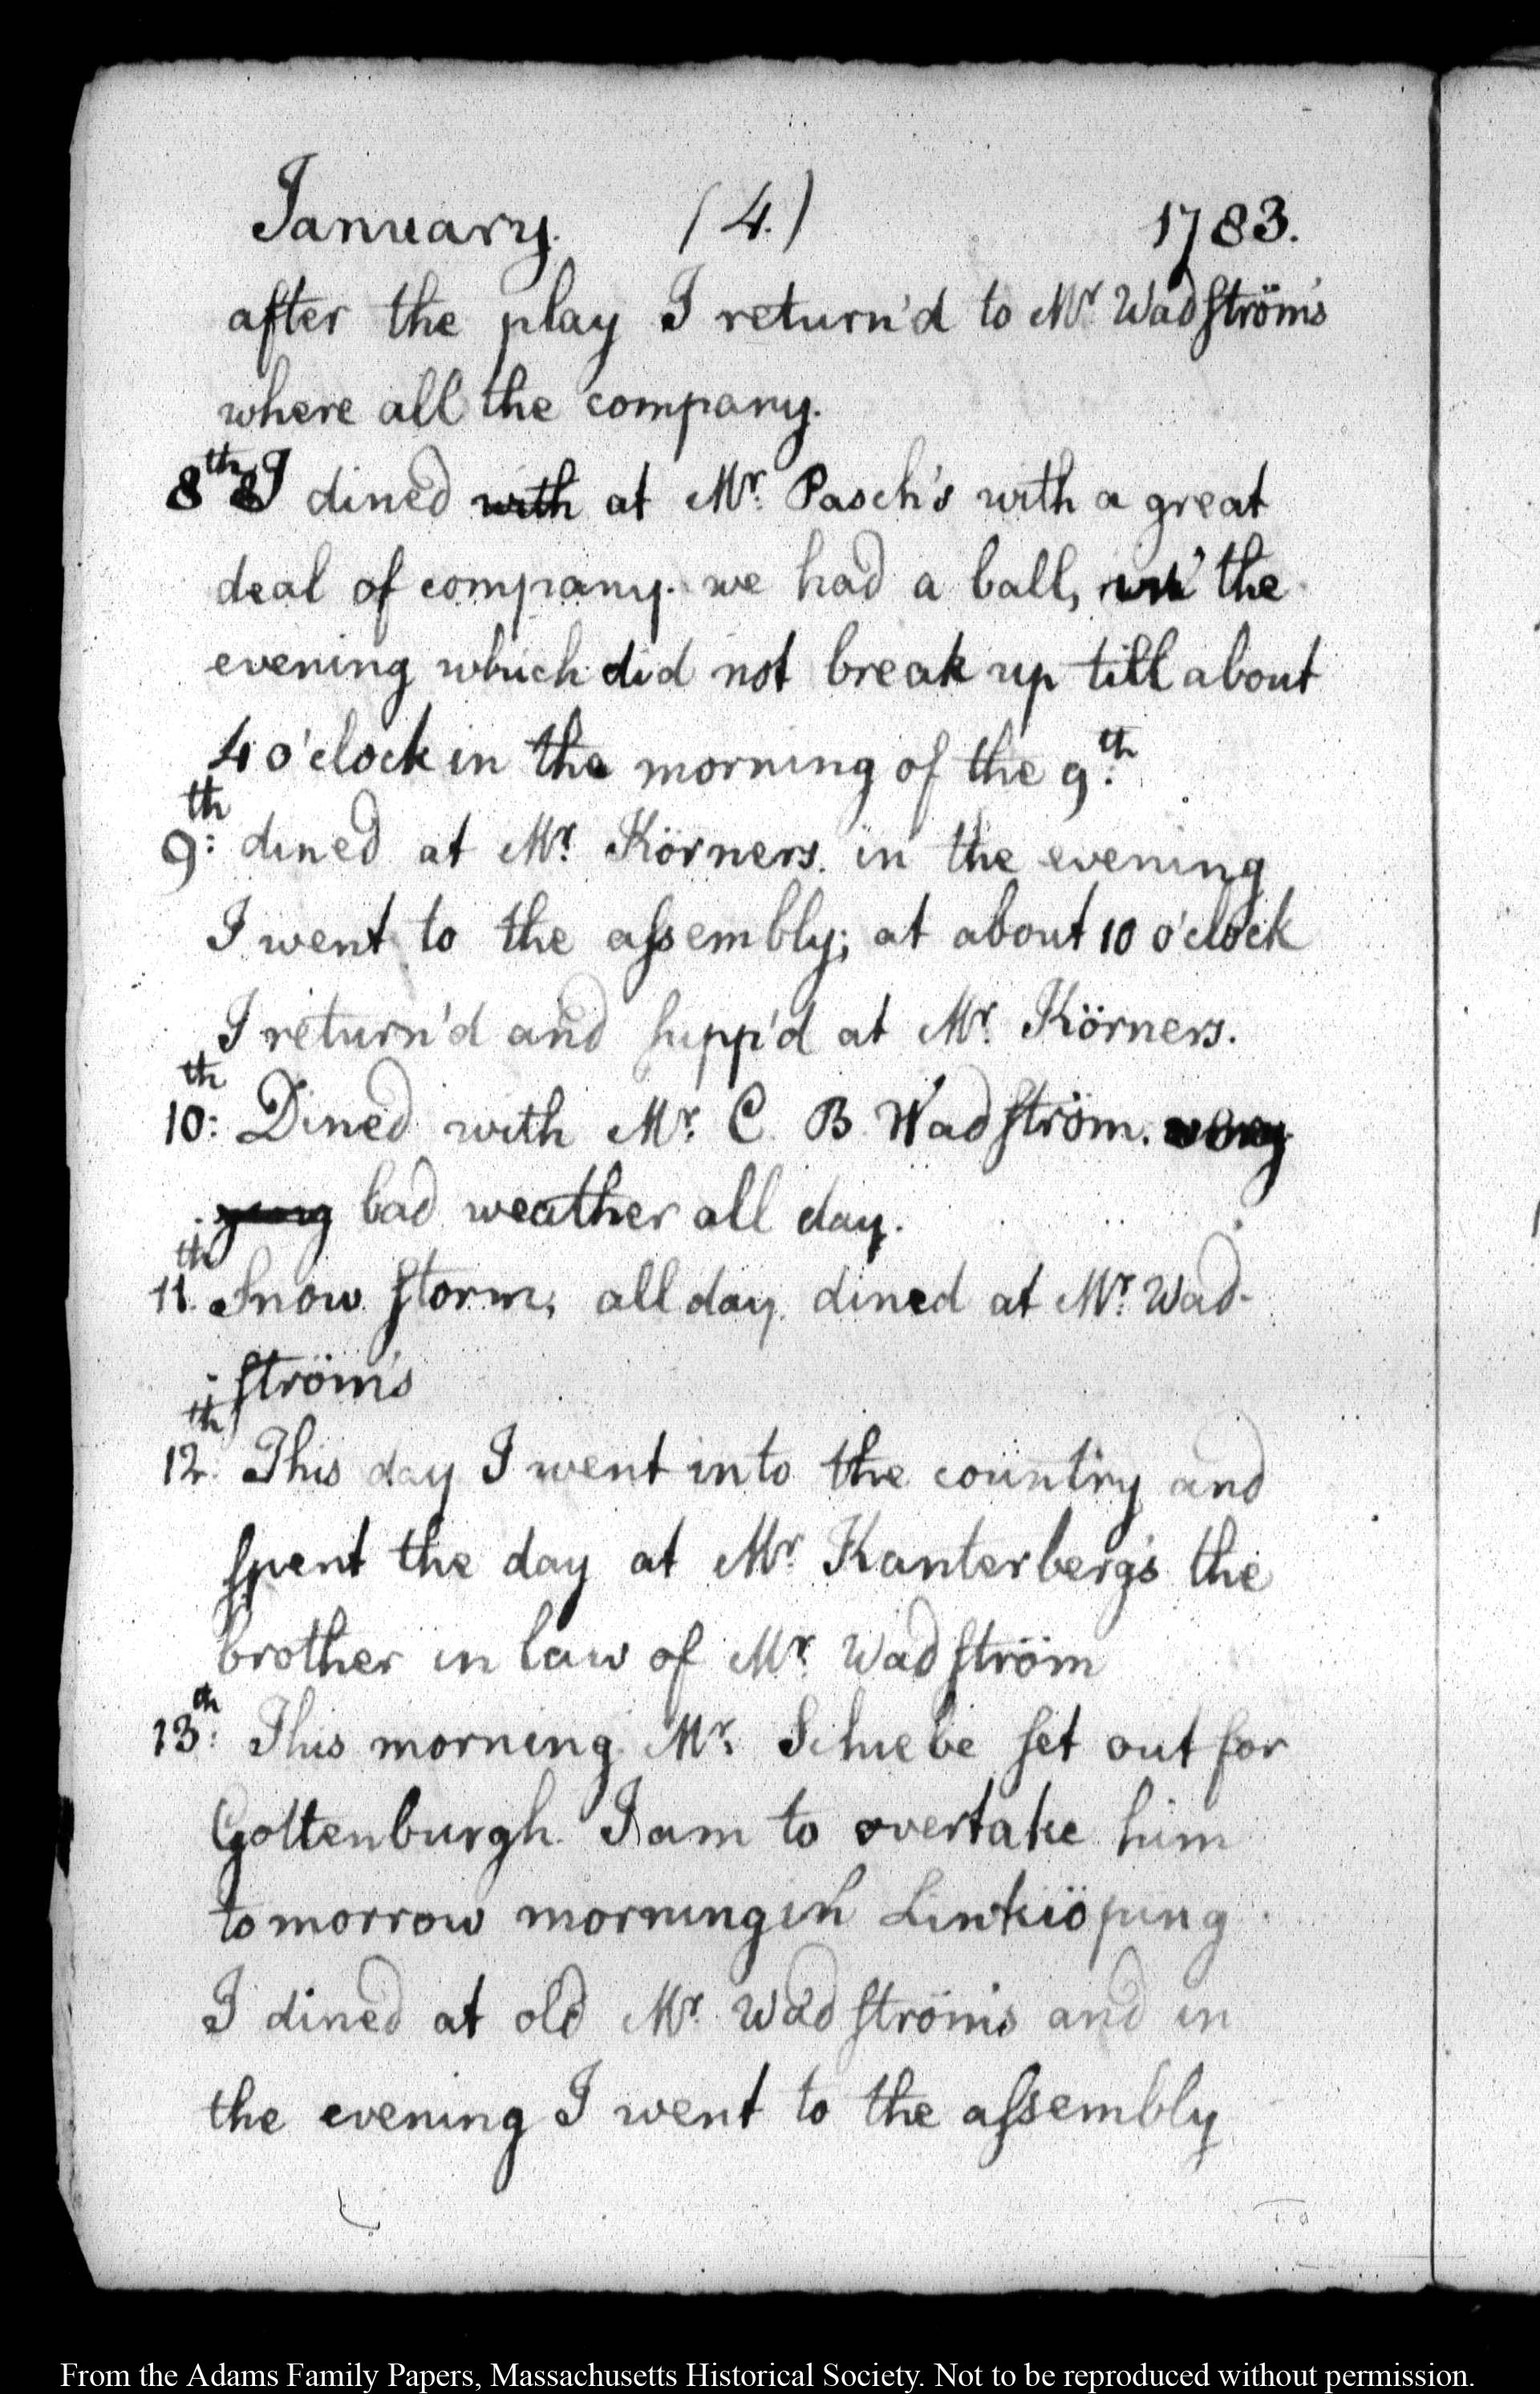 January. (4.) 1783.
after the play I return'd to Mr. Wadström's
where all the company.
8th I dined with at Mr. Pasch's with a great
deal of company. we had a ball, in the
evening which did not break up till about
4 o'clock in the morning of the 9th.
9th: dined at Mr. Körners. in the evening
I went to the assembly; at about 10 o'clock
I return'd and supp'd at Mr. Körners.
10th: Dined with Mr. C B Wadström. very
bad weather all day.
11th. Snow storm, all day. dined at Mr. Wad-
ström's
12th. This day I went into the country and
spent the day at Mr. Kanterberg's the
brother in law of Mr. Wadström
13th: This morning Mr. Schiebe set out for
Gottenburgh. I am to overtake him
tomorrow morning in Linkiöping
I dined at old Mr. Wadström's and in
the evening I went to the assembly
From the Adams Family Papers, Massachusetts Historical Society. Not to be reproduced without permission.